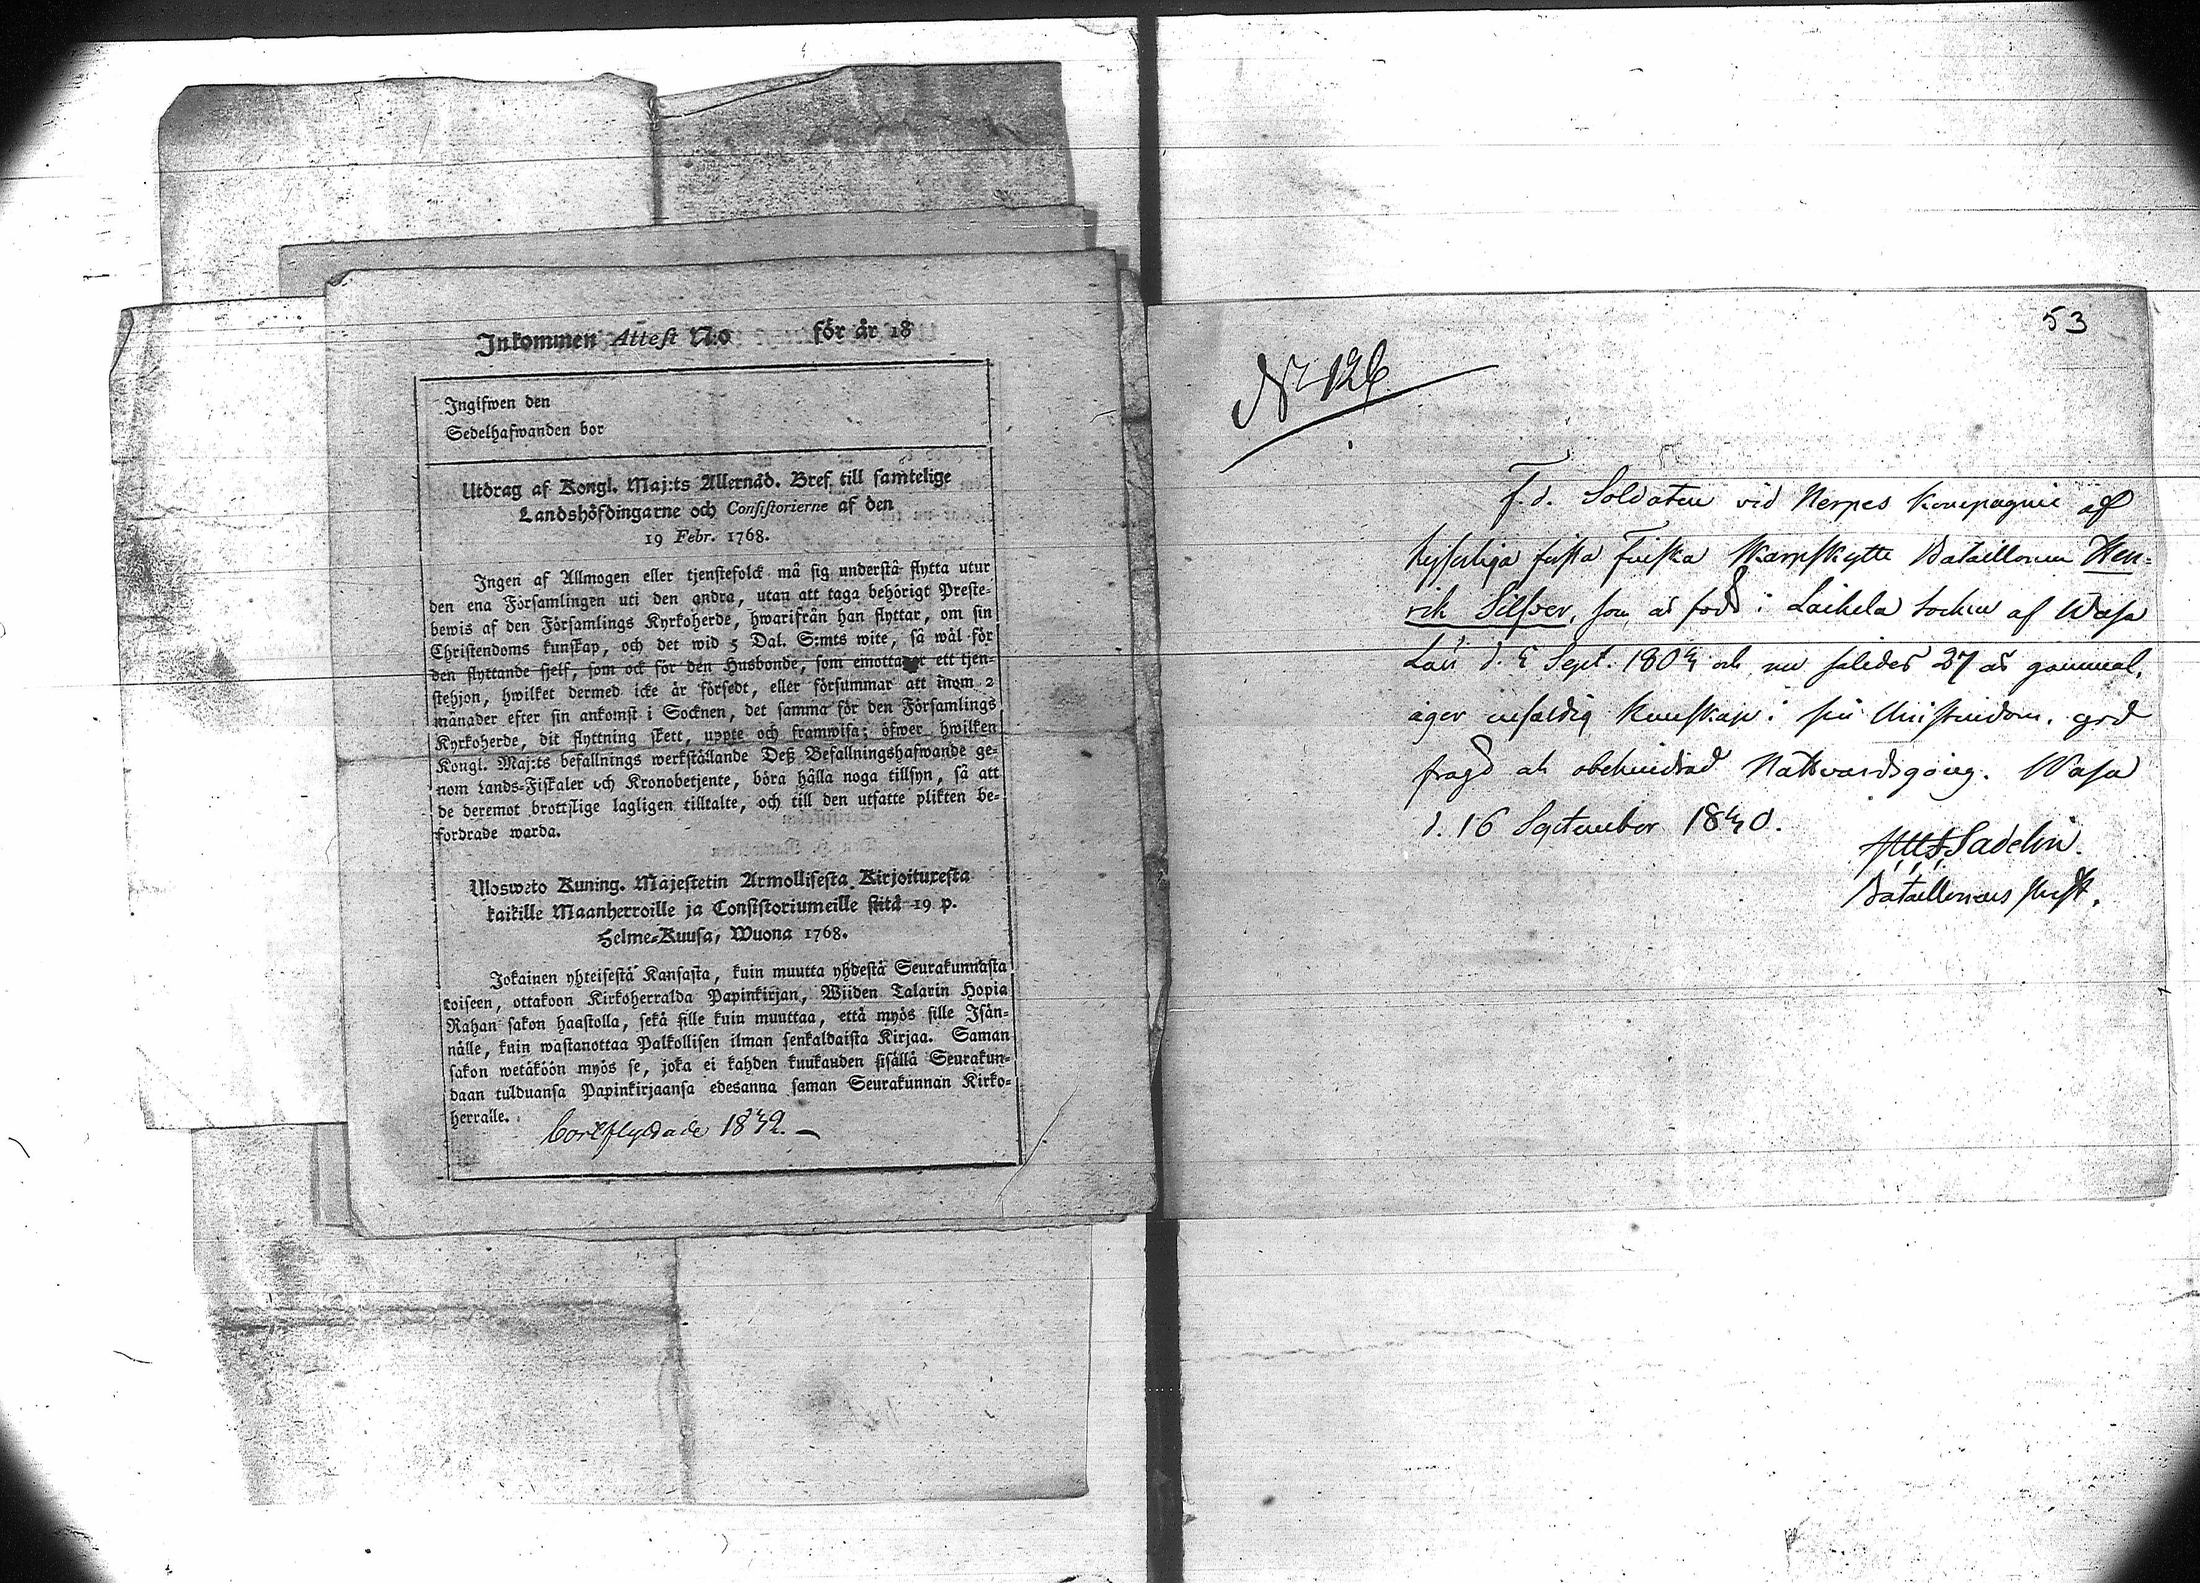 Inkommen Attest N:o för år 18
Ingifwen den
Sedelhafwanden bor
Utdrag af Kongl. Maj:ts Allernåd. Bref till samtelige
Landshöfdingarne och Consistorierne af den
19 Febr. 1768.
Ingen af Allmogen eller tjenstefolck må sig understå flytta utur
den ena Församlingen uti den andra, utan att taga behörigt Preste-
bewis af den Församlings Kyrkoherde, hwarifrån han flyttar, om sin
Christendoms kunskap, och det wid 5 Dal. S:mts wite, så wäl för
den flyttande sjelf, som ock för den Husbonde, som emottager ett tjen-
stehjon, hwilket dermed icke är försedt, eller försummar att inom 2
månader efter sin ankomst i Socknen, det samma för den Församlings
Kyrkoherde, dit flyttning skett, uppte och framwisa; öfwer hwilken
Kongl. Maj:ts befallnings werkställande Deß Befallningshafwande ge-
nom Lands-Fiskaler och Kronobetjente, böra hålla noga tillsyn, så att
de deremot brottslige lagligen tilltalte, och till den utsatte plikten be-
fordrade warda.
Uloswoto Kuning. Majestetin Armollisesta Kirjoituxesta
kaikille Maanherroille ja Consistoriumeille siitä 19 p.
Helme-Kuusa, Wuona 1768.
Jokainen yhteisestä Kansasta, kuin muutta yhdestä Seurakunnasta
toiseen, ottakoon Kirkoherralda Papinkirjan, Wiiden Talarin Hopia
Rahan sakon haastolla, sekä sille kuin muuttaa, että myös sille Isän-
nälle, kuin wastanottaa Palkollisen ilman senkaldaista Kirjaa. Saman
sakon wetäköön myös se, joka ei kahden kuukauden sisällä Seurakun-
daan tulduansa Papinkirjaansa edesanna saman Seurakunnan Kirko-
herralle.
Bortflyttade 1842.
53
N 126
f. d. Soldaten vid Nerpes Kompagnie af
kejserliga första Finska Skarpskytte Bataillonen Hen-
rik Silfver, som är född i Laihela Socken af Wasa
Län d. 4 Sept. 1803 och nu således 37 år gammal,
äger enfaldig kunskap i sin Christendom, god
frägd och obehindrad Nattvardsgång. Wasa
d. 16 September 1840.
Sadelin.
Bataillonens